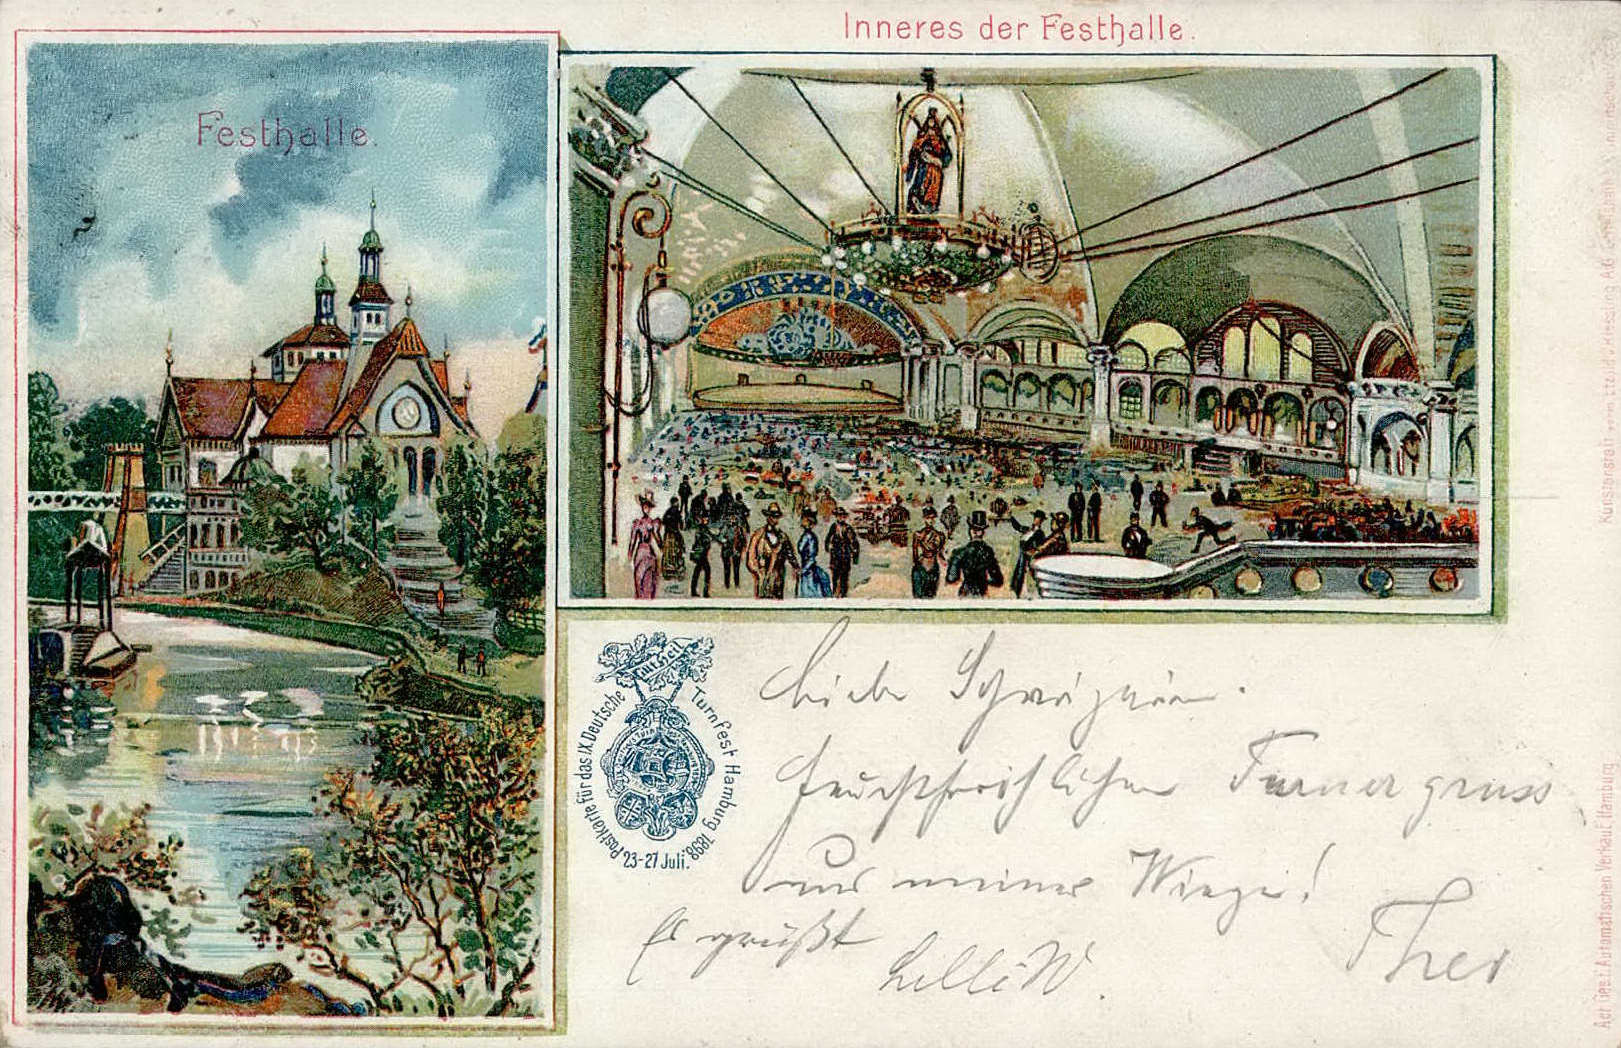 Inneres der Festhalle.
Festhalle.
Gut Heil
Postkarte für das IX. Deutsche Turnfest Hamburg 1898.
23-27 Juli.
Liebe Schwägerin.
Turnergruss
aus meiner Wiege!
Es grüßt
Lilli W.
Act. Ges. f. Automatischen Verkauf, Hamburg